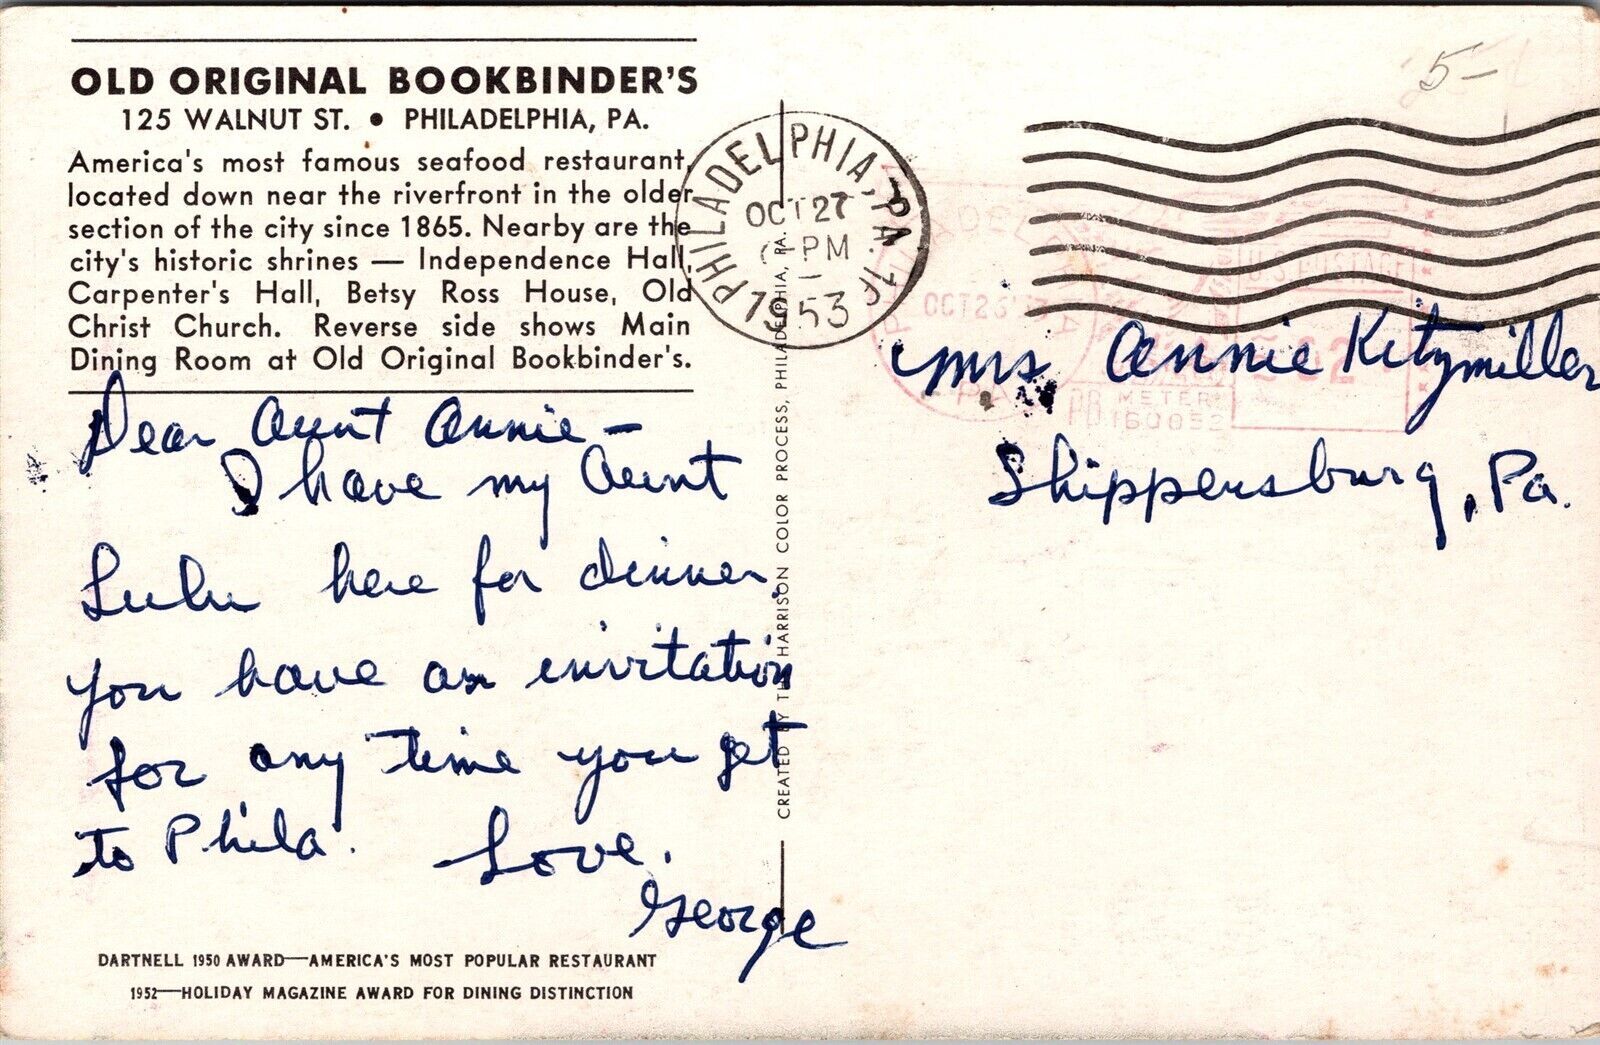 OLD ORIGINAL BOOKBINDER'S
125 WALNUT ST. • PHILADELPHIA, PA.
America's most famous seafood restaurant,
located down near the riverfront in the older
section of the city since 1865. Nearby are the
city's historic shrines — Independence Hall,
Carpenter's Hall, Betsy Ross House, Old
Christ Church. Reverse side shows Main
Dining Room at Old Original Bookbinder's.
Dear Aunt Annie —
I have my Aunt
Lulu here for dinner.
You have an invitation
for any time you get
to Phila. Love.
George
DARTNELL 1950 AWARD—AMERICA'S MOST POPULAR RESTAURANT
1952—HOLIDAY MAGAZINE AWARD FOR DINING DISTINCTION
CREATED BY THE HARRISON COLOR PROCESS, PHILADELPHIA, PA.
PHILADELPHIA, PA.
OCT 27
PM
1953
5—
U.S. POSTAGE
OCT 26
METER
160052
Mrs Annie Kitzmiller
Shippensburg, Pa.